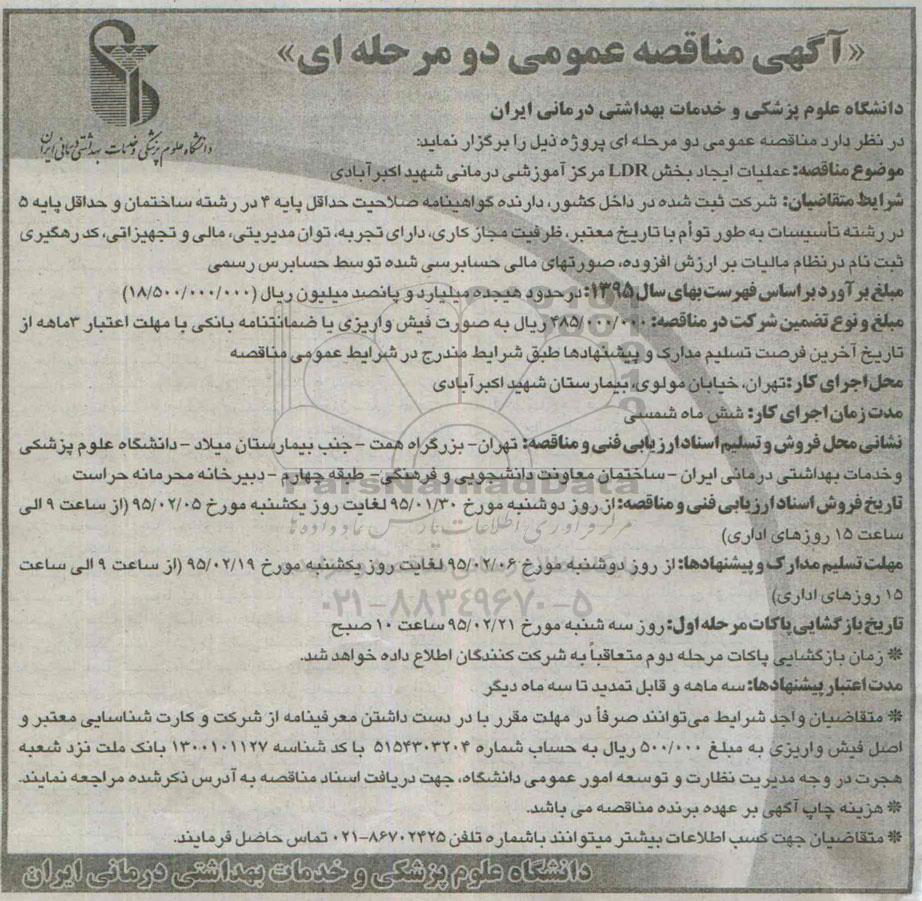 «آگهی مناقصه عمومی دو مرحله ای»
دانشگاه علوم پزشکی و خدمات بهداشتی درمانی ایران
دانشگاه علوم پزشکی و خدمات بهداشتی درمانی ایران
در نظر دارد مناقصه عمومی دو مرحله ای پروژه ذیل را برگزار نماید:
موضوع مناقصه: عملیات ایجاد بخش LDR مرکز آموزشی درمانی شهید اکبرآبادی
شرایط متقاضیان: شرکت ثبت شده در داخل کشور، دارنده گواهینامه صلاحیت حداقل پایه ۴ در رشته ساختمان و حداقل پایه ۵
در رشته تأسیسات به طور توأم با تاریخ معتبر، ظرفیت مجاز کاری، دارای تجربه، توان مدیریتی، مالی و تجهیزاتی، کد رهگیری
ثبت نام در نظام مالیات بر ارزش افزوده، صورتهای مالی حسابرسی شده توسط حسابرس رسمی
مبلغ برآورد بر اساس فهرست بهای سال ۱۳۹۵: در حدود هیجده میلیارد و پانصد میلیون ریال (۱۸/۵۰۰/۰۰۰/۰۰۰)
مبلغ و نوع تضمین شرکت در مناقصه: ۴۸۵/۰۰۰/۰۰۰ ریال به صورت فیش واریزی یا ضمانتنامه بانکی با مهلت اعتبار ۳ماهه از
تاریخ آخرین فرصت تسلیم مدارک و پیشنهادها طبق شرایط مندرج در شرایط عمومی مناقصه
محل اجرای کار: تهران، خیابان مولوی، بیمارستان شهید اکبرآبادی
مدت زمان اجرای کار: شش ماه شمسی
نشانی محل فروش و تسلیم اسناد ارزیابی فنی و مناقصه: تهران- بزرگراه همت - جنب بیمارستان میلاد - دانشگاه علوم پزشکی
و خدمات بهداشتی درمانی ایران - ساختمان معاونت دانشجویی و فرهنگی - طبقه چهارم - دبیرخانه محرمانه حراست
ParsNamadData
تاریخ فروش اسناد ارزیابی فنی و مناقصه: از روز دوشنبه مورخ ۹۵/۰۱/۳۰ لغایت روز یکشنبه مورخ ۹۵/۰۲/۰۵ (از ساعت ۹ الی
ساعت ۱۵ روزهای اداری)
مرکز فرآوری اطلاعات پارس نماد داده ها
مهلت تسلیم مدارک و پیشنهادها: از روز دوشنبه مورخ ۹۵/۰۲/۰۶ لغایت روز یکشنبه مورخ ۹۵/۰۲/۱۹ (از ساعت ۹ الی ساعت
۱۵ روزهای اداری)
۰۲۱-۸۸۳۴۹۶۷۰-۵
تاریخ بازگشایی پاکات مرحله اول: روز سه شنبه مورخ ۹۵/۰۲/۲۱ ساعت ۱۰ صبح
* زمان بازگشایی پاکات مرحله دوم متعاقباً به شرکت کنندگان اطلاع داده خواهد شد.
مدت اعتبار پیشنهادها: سه ماهه و قابل تمدید تا سه ماه دیگر
* متقاضیان واجد شرایط می‌توانند صرفاً در مهلت مقرر با در دست داشتن معرفینامه از شرکت و کارت شناسایی معتبر و
اصل فیش واریزی به مبلغ ۵۰۰/۰۰۰ ریال به حساب شماره ۵۱۵۴۳۰۳۲۰۴ با کد شناسه ۱۳۰۰۱۰۱۱۲۷ بانک ملت نزد شعبه
هجرت در وجه مدیریت نظارت و توسعه امور عمومی دانشگاه، جهت دریافت اسناد مناقصه به آدرس ذکرشده مراجعه نمایند.
* هزینه چاپ آگهی بر عهده برنده مناقصه می باشد.
* متقاضیان جهت کسب اطلاعات بیشتر میتوانند باشماره تلفن ۸۶۷۰۲۴۲۵-۰۲۱ تماس حاصل فرمایند.
دانشگاه علوم پزشکی و خدمات بهداشتی درمانی ایران